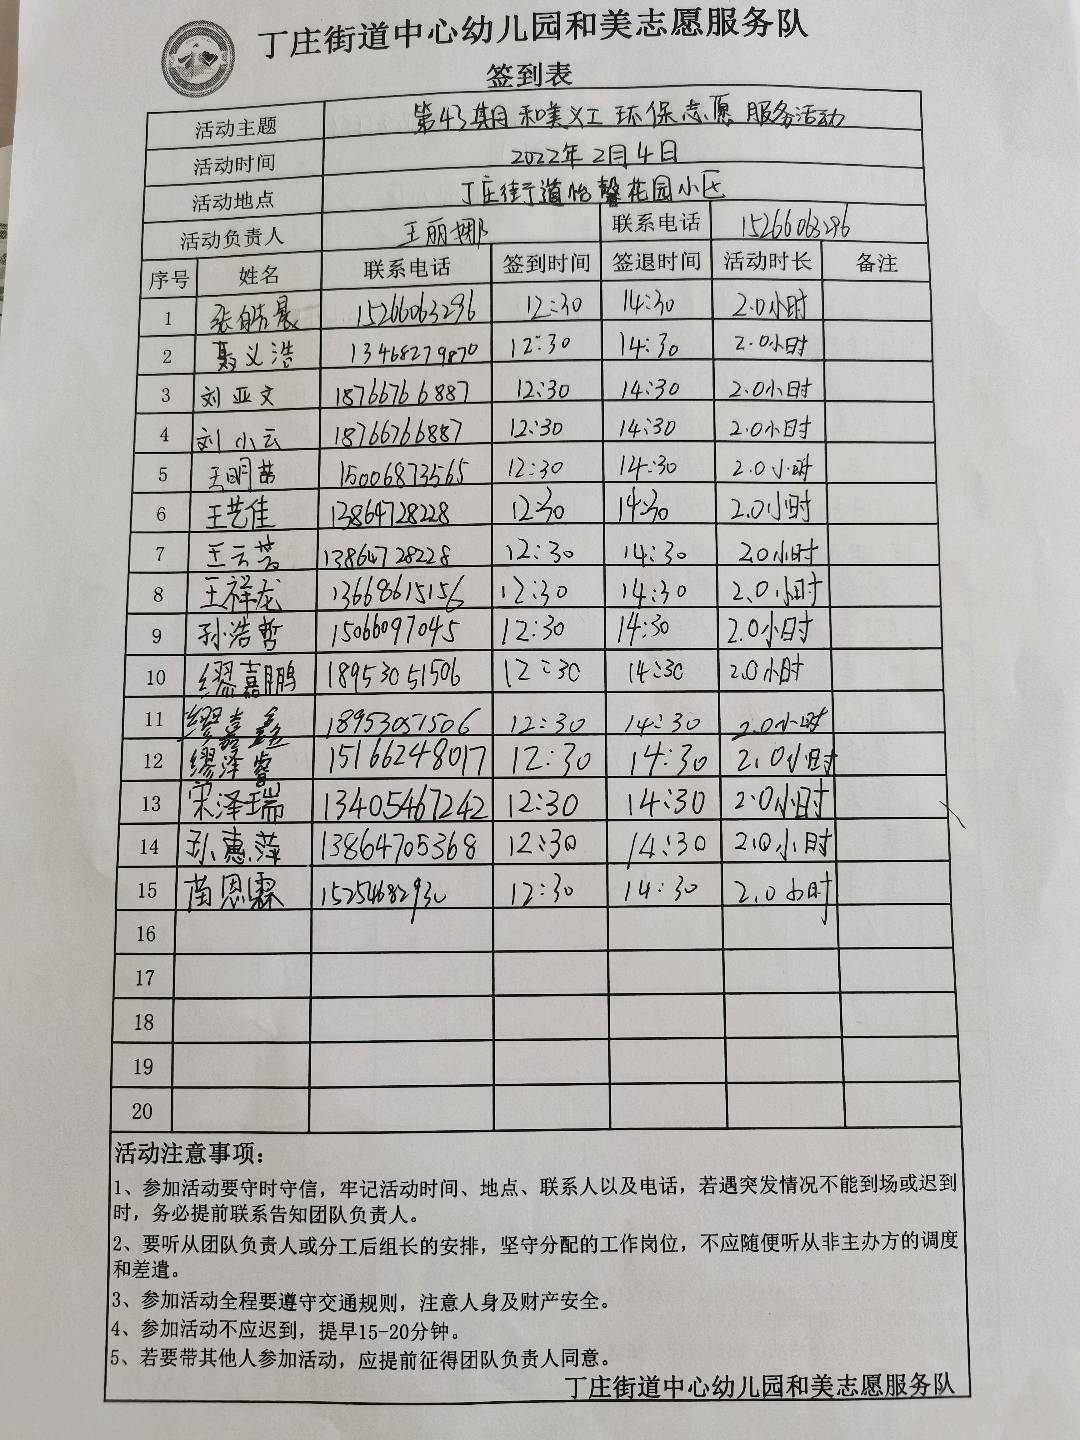 丁庄街道中心幼儿园和美志愿服务队
签到表
活动主题 第43期和美义工环保志愿服务活动
活动时间 2022年2月4日
活动地点 丁庄街道怡馨花园小区
活动负责人 王丽娜 联系电话 15266063296
序号 姓名 联系电话 签到时间 签退时间 活动时长 备注
1 张皓晨 15266063296 12:30 14:30 2.0小时
2 聂义浩 13468279870 12:30 14:30 2.0小时
3 刘亚文 18766766887 12:30 14:30 2.0小时
4 刘小云 18766766887 12:30 14:30 2.0小时
5 王明茜 15006873565 12:30 14:30 2.0小时
6 王艺佳 13864728228 12:30 14:30 2.0小时
7 王云 13864728228 12:30 14:30 2.0小时
8 王祥龙 13668615156 12:30 14:30 2.0小时
9 孙浩哲 15066097045 12:30 14:30 2.0小时
10 缪嘉鹏 18953051506 12:30 14:30 2.0小时
11 缪嘉鑫 18953051506 12:30 14:30 2.0小时
12 缪泽睿 15166248017 12:30 14:30 2.0小时
13 宋泽瑞 13405467242 12:30 14:30 2.0小时
14 孙惠萍 13864705368 12:30 14:30 2.0小时
15 苗恩霖 15254682930 12:30 14:30 2.0小时
16
17
18
19
20
活动注意事项：
1、参加活动要守时守信，牢记活动时间、地点、联系人以及电话，若遇突发情况不能到场或迟到
时，务必提前联系告知团队负责人。
2、要听从团队负责人或分工后组长的安排，坚守分配的工作岗位，不应随便听从非主办方的调度
和差遣。
3、参加活动全程要遵守交通规则，注意人身及财产安全。
4、参加活动不应迟到，提早15-20分钟。
5、若要带其他人参加活动，应提前征得团队负责人同意。
丁庄街道中心幼儿园和美志愿服务队